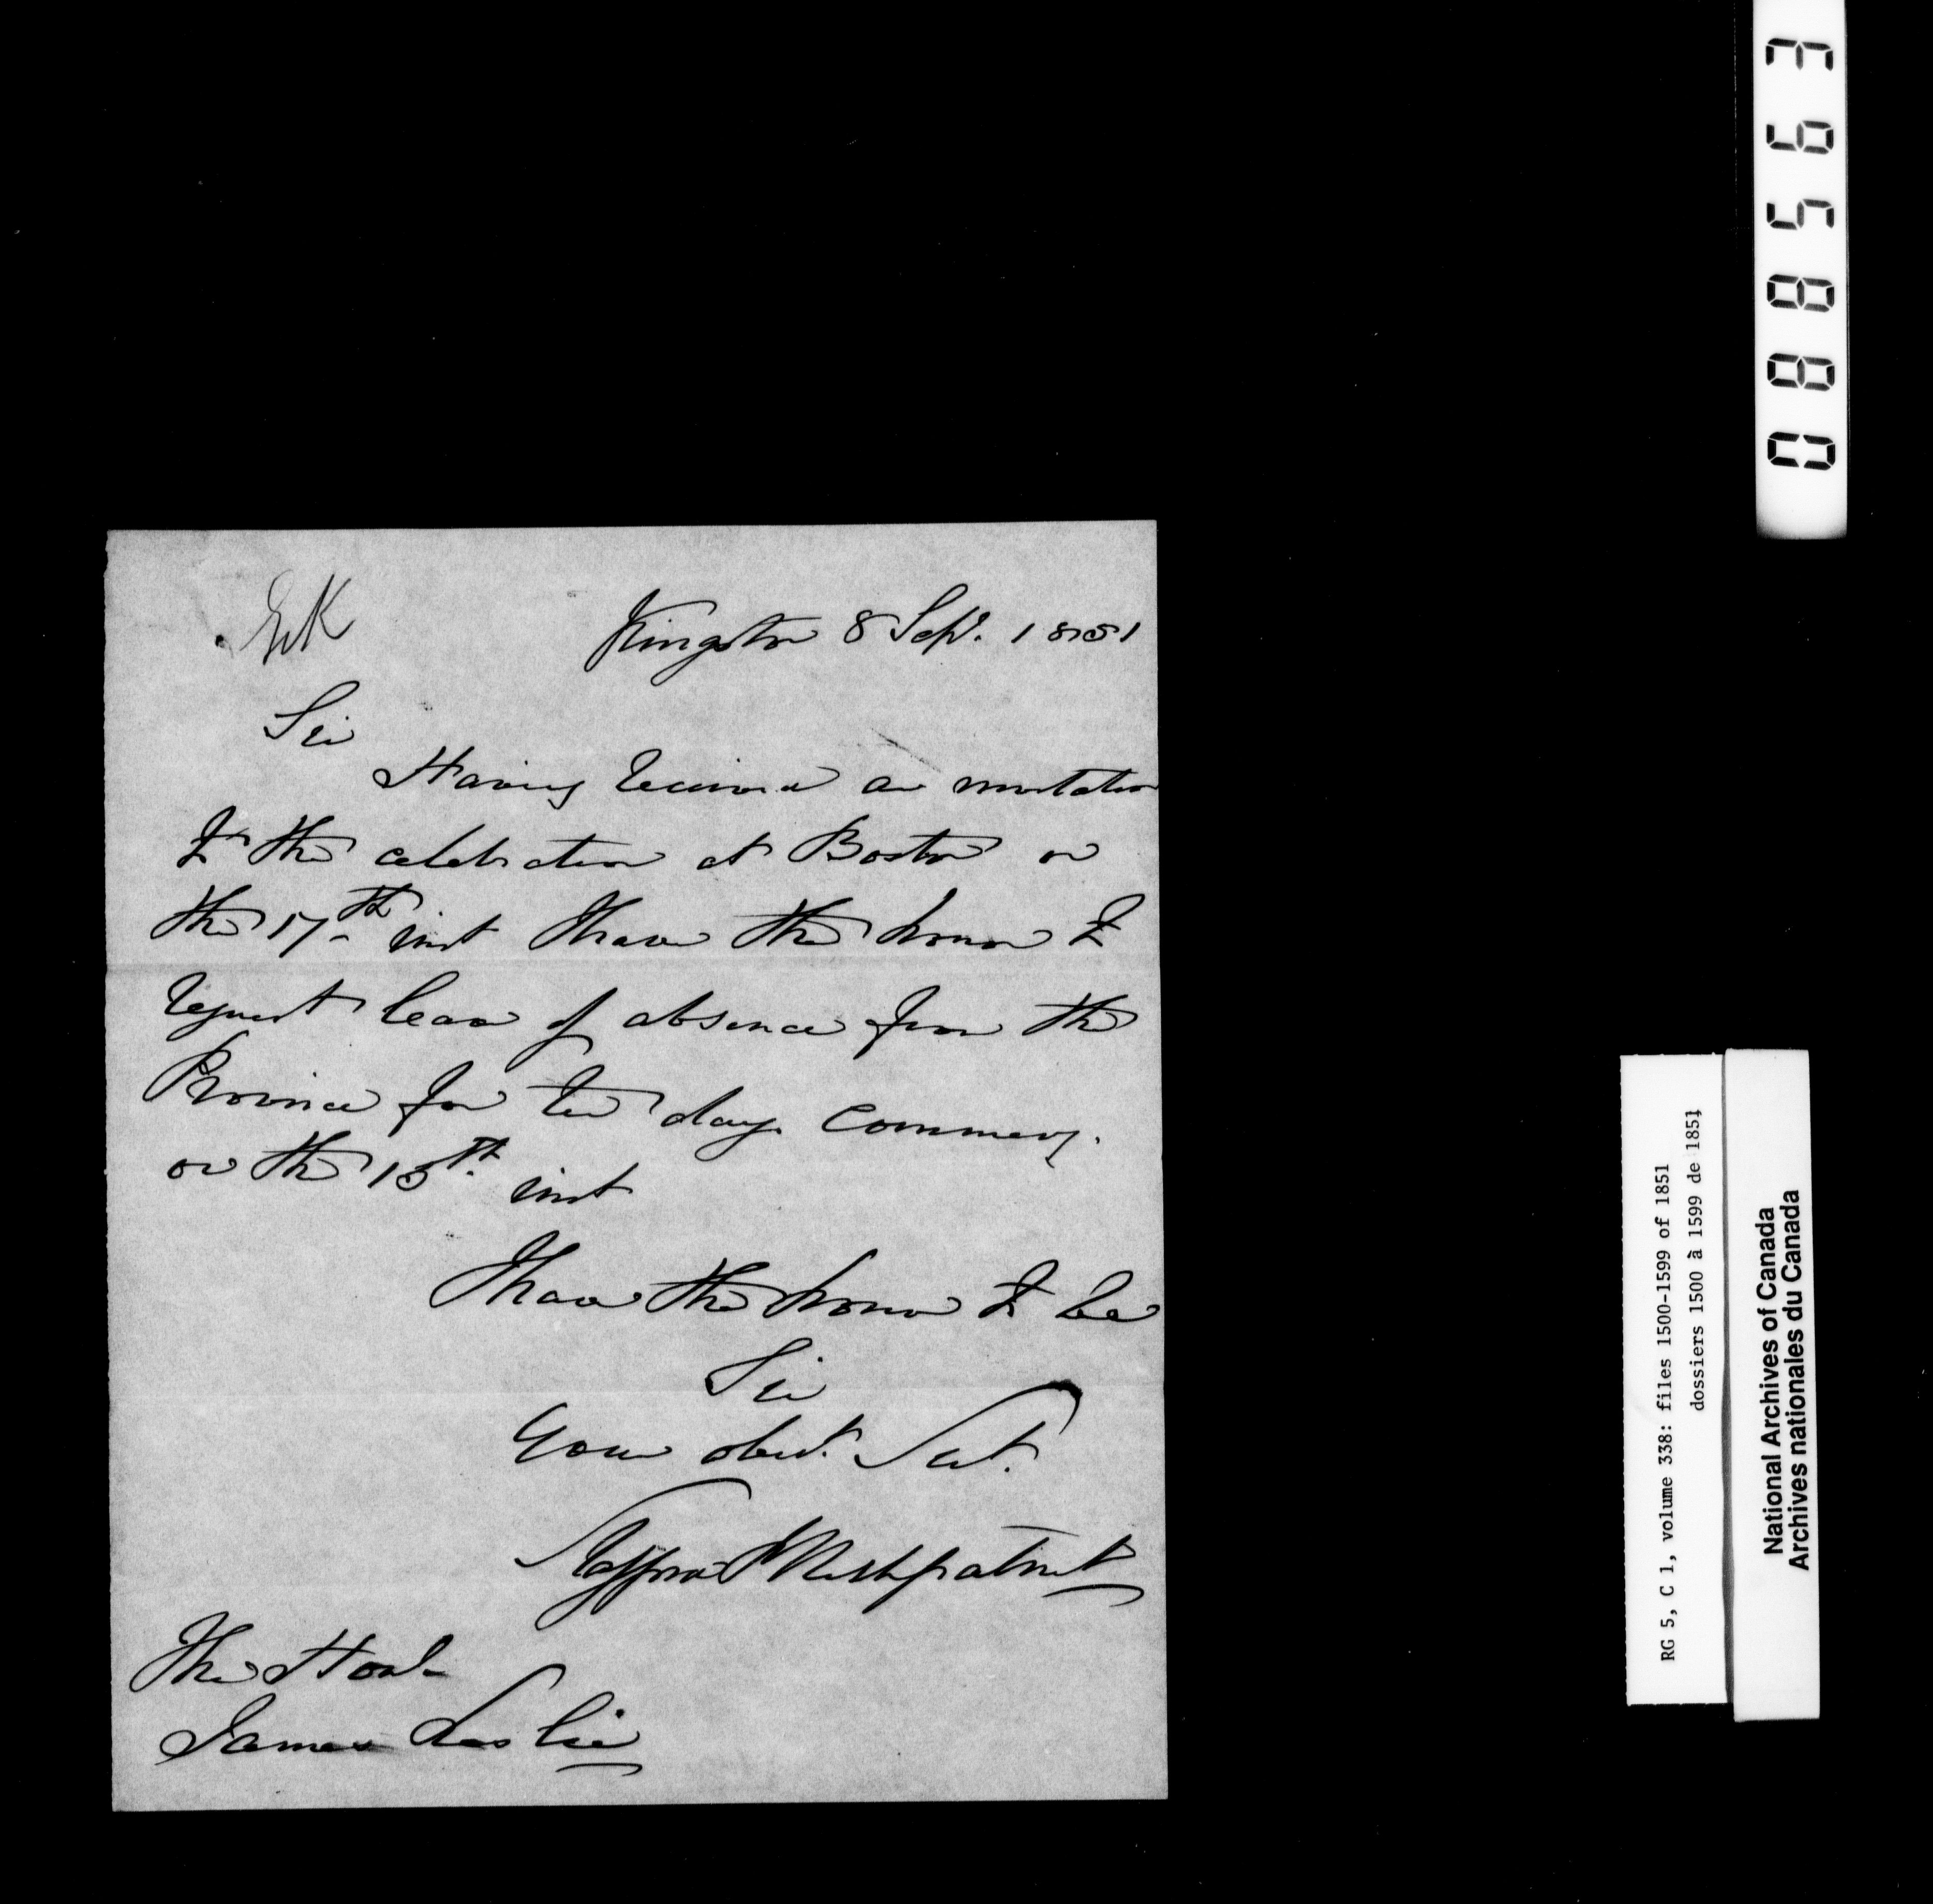 Kingston 8 Sept. 1851
Sir
Having received an invitation
to the celebration at Boston on
the 17th inst I have the honor to
request leave of absence from the
Province for ten days commencg.
on the 15th. inst
I have the honor to be
Sir
Your obedt. Svt.
Kirkpatrick
The Honl
James Leslie
088563
RG 5, C 1, volume 338: files 1500-1599 of 1851
dossiers 1500 à 1599 de 1851
National Archives of Canada
Archives nationales du Canada